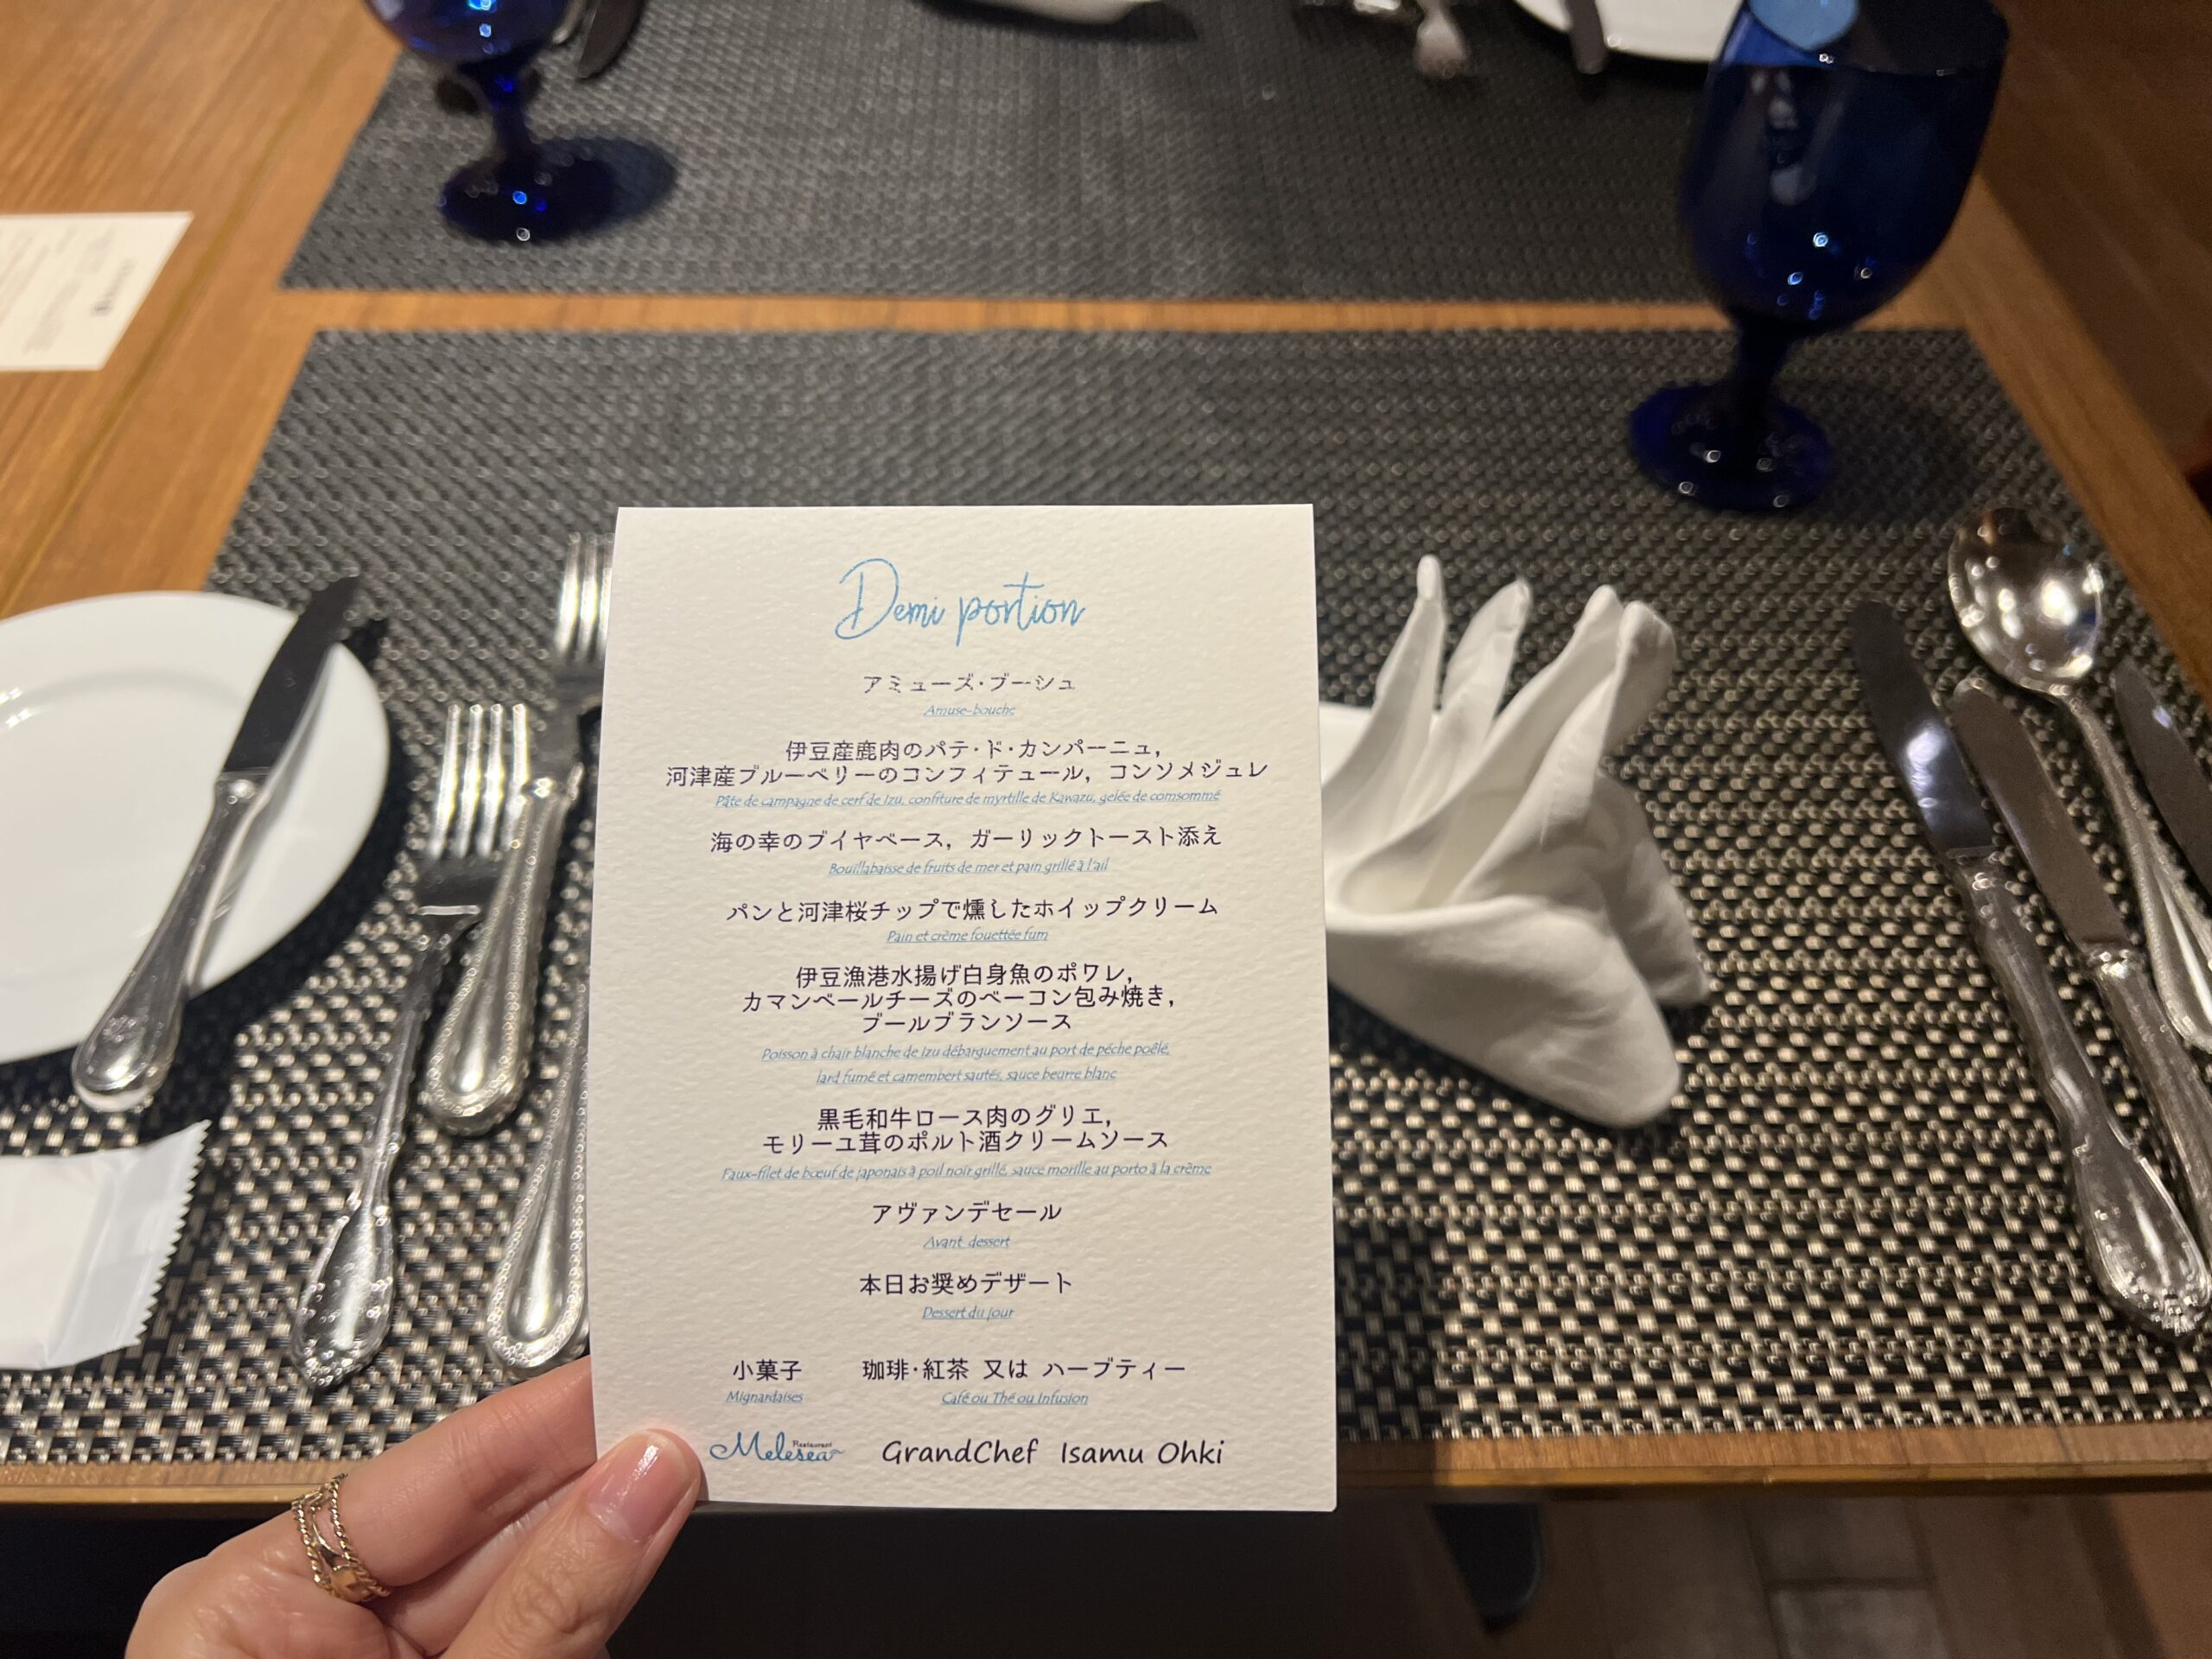 Demi portion
アミューズ・ブーシュ
Amuse-bouche
伊豆産鹿肉のパテ・ド・カンパーニュ，
河津産ブルーベリーのコンフィテュール，コンソメジュレ
Pâte de campagne de cerf de Izu, confiture de myrtille de Kawazu, gelée de comsommé
海の幸のブイヤベース，ガーリックトースト添え
Bouillabaisse de fruits de mer et pain grillé à l'ail
パンと河津桜チップで燻したホイップクリーム
Pain et crème fouettée fum
伊豆漁港水揚げ白身魚のポワレ，
カマンベールチーズのベーコン包み焼き，
ブールブランソース
Poisson à chair blanche de Izu débarquement au port de pêche poêlé,
lard fumé et camembert sautés, sauce beurre blanc
黒毛和牛ロース肉のグリエ，
モリーユ茸のポルト酒クリームソース
Faux-filet de bœuf de japonais à poil noir grillé, sauce morille au porto à la crème
アヴァンデセール
Avant dessert
本日お奨めデザート
Dessert du jour
小菓子 珈琲・紅茶 又は ハーブティー
Mignardaises Café ou Thé ou Infusion
Restaurant
Melesea GrandChef Isamu Ohki